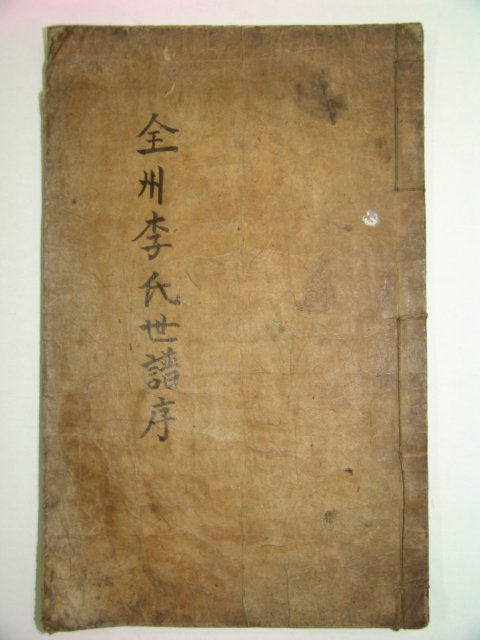 全州李氏世譜序